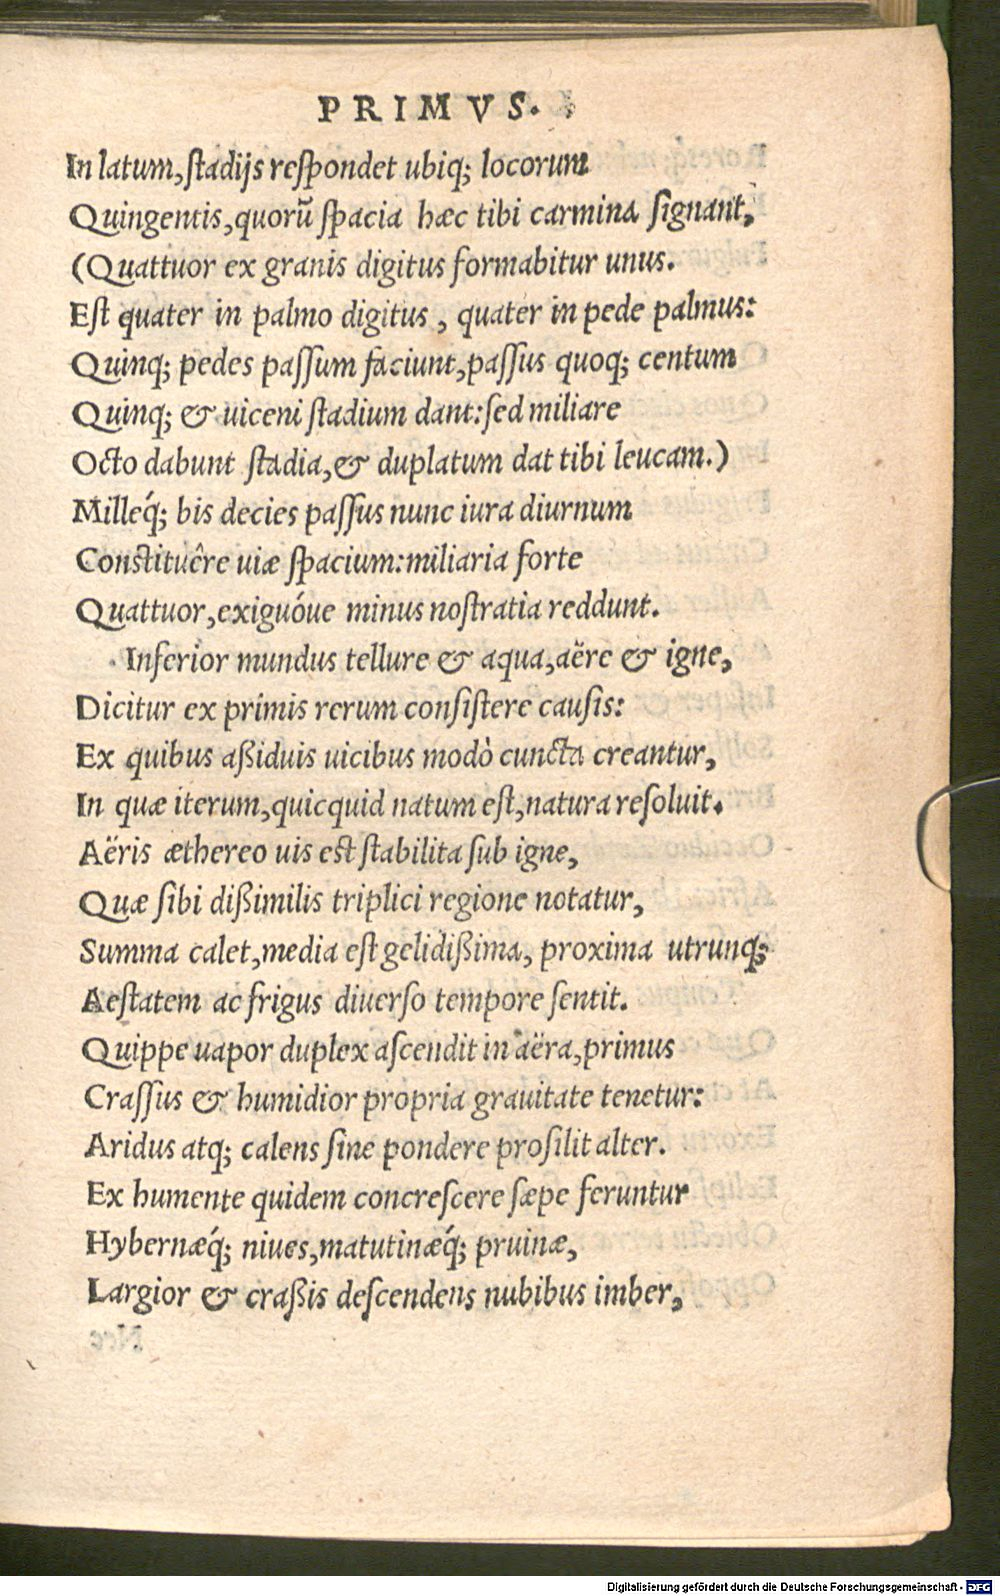 PRIMVS.
In latum, ſtadijs reſpondet ubiq; locorum
Quingentis, quorū ſpacia hæc tibi carmina ſignant,
(Quattuor ex granis digitus formabitur unus.
Eſt quater in palmo digitus, quater in pede palmus:
Quinq; pedes paſſum faciunt, paſſus quoq; centum
Quinq; & uiceni ſtadium dant: ſed miliare
Octo dabunt ſtadia, & duplatum dat tibi leucam.)
Milleq́; bis decies paſſus nunc iura diurnum
Conſtituêre uiæ ſpacium: miliaria forte
Quattuor, exiguóue minus noſtratia reddunt.
Inferior mundus tellure & aqua, aëre & igne,
Dicitur ex primis rerum conſiſtere cauſis:
Ex quibus aßiduis uicibus modò cuncta creantur,
In quæ iterum, quicquid natum eſt, natura reſoluit.
Aëris æthereo uis est ſtabilita ſub igne,
Quæ ſibi dißimilis triplici regione notatur,
Summa calet, media eſt gelidißima, proxima utrunq;
Aeſtatem ac frigus diuerſo tempore ſentit.
Quippe uapor duplex aſcendit in aëra, primus
Craſſus & humidior propria grauitate tenetur:
Aridus atq; calens ſine pondere proſilit alter.
Ex humente quidem concreſcere ſæpe feruntur
Hybernæq́; niues, matutinæq́; pruinæ,
Largior & craßis deſcendens nubibus imber,
Digitalisierung gefördert durch die Deutsche Forschungsgemeinschaft - DFG